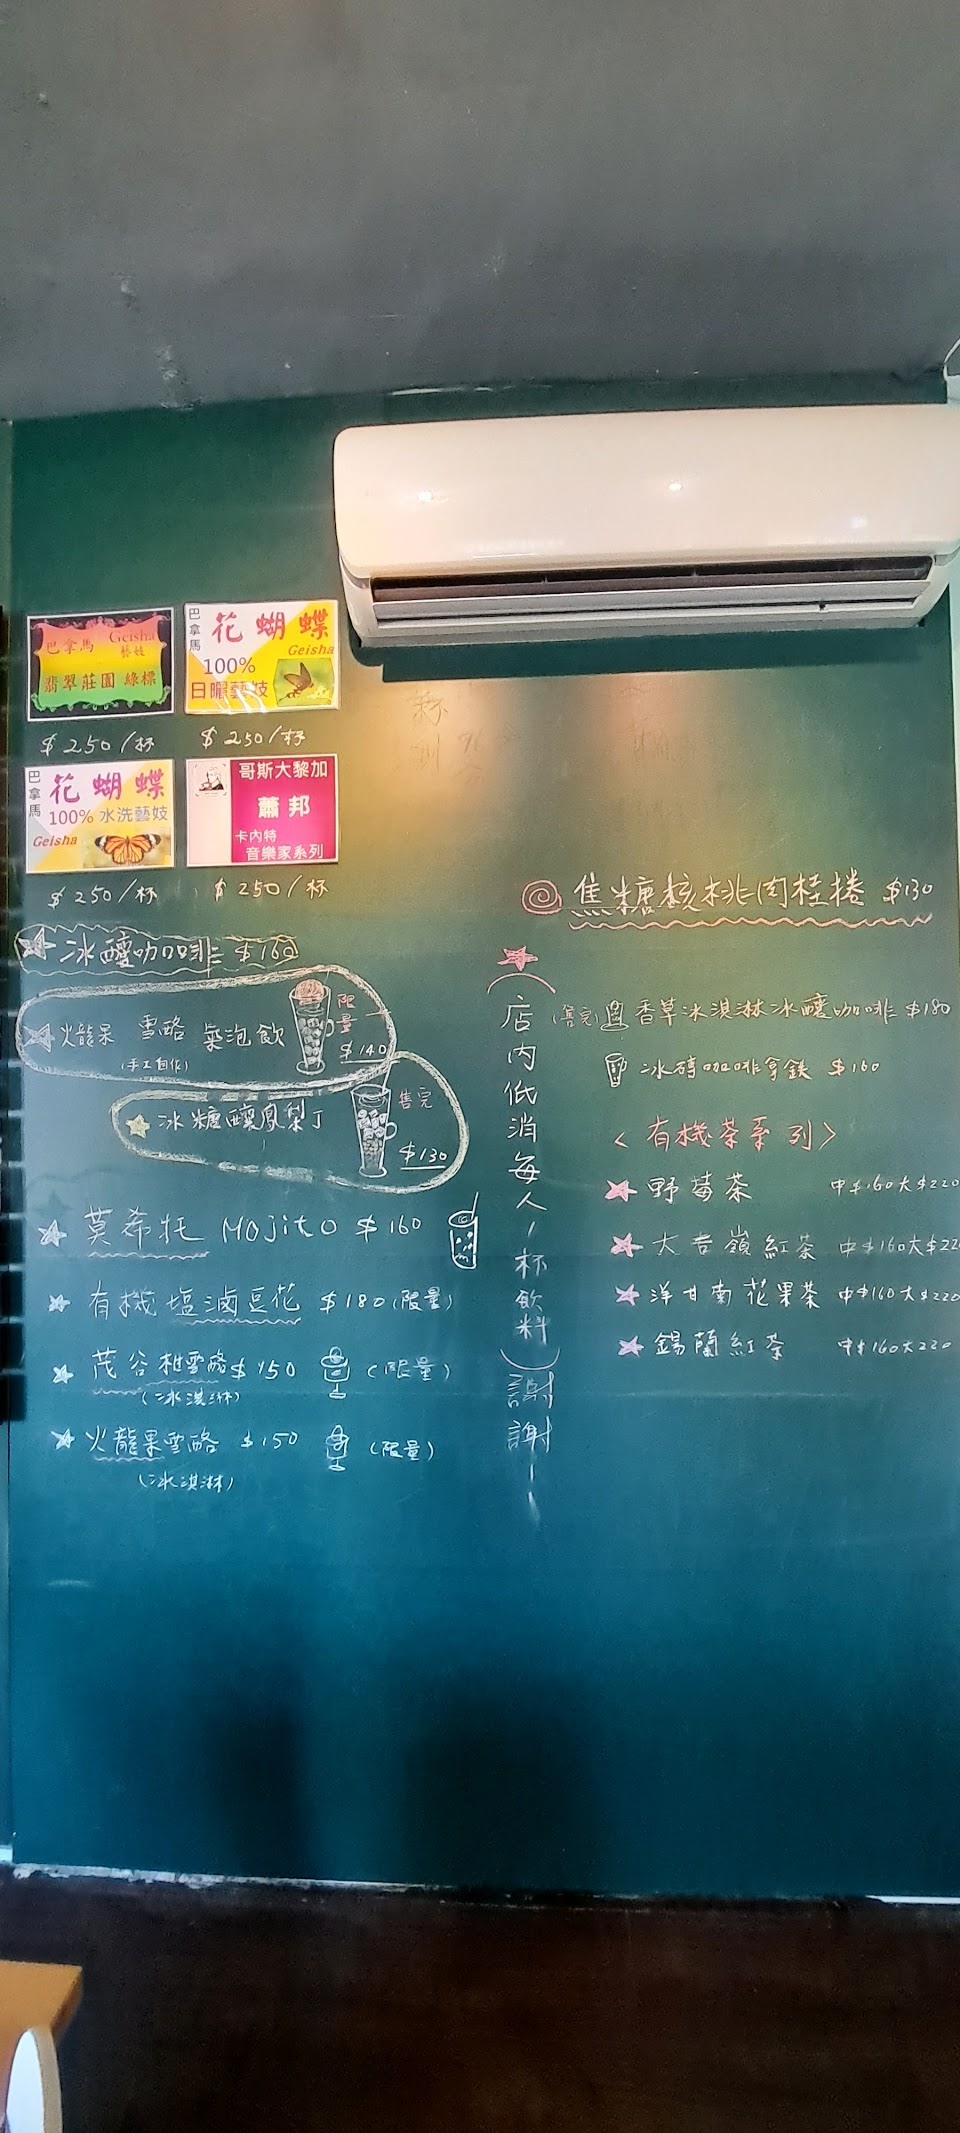 巴拿馬 Geisha
藝妓
翡翠莊園 綠標
$250/杯
巴拿馬
花蝴蝶
Geisha
100%
日曬藝妓
$250/杯
巴拿馬
花蝴蝶
100% 水洗藝妓
Geisha
$250/杯
哥斯大黎加
蕭邦
卡內特
音樂家系列
$250/杯
冰釀咖啡 $160
火龍果 雪酪 氣泡飲 限量 $140
(手工自作)
冰糖釀鳳梨丁 售完 $130
莫希托 Mojito $160
有機塩滷豆花 $180(限量)
茂谷柑雪酪 $150 (限量)
(冰淇淋)
火龍果雪酪 $150 (限量)
(冰淇淋)
店內低消每人1杯飲料
謝謝!
焦糖核桃肉桂捲 $130
(售完) 香草冰淇淋冰釀咖啡 $180
冰磚咖啡拿鉄 $160
<有機茶系列>
野莓茶 中$160大$220
大吉嶺紅茶 中$160大$22
洋甘菊花果茶 中$160大$220
錫蘭紅茶 中$160大220